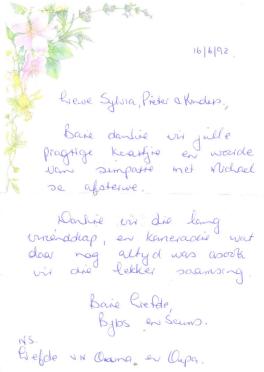 16/4/92
Liewe Sylvia, Pieter & Kinders,
Baie dankie vir julle
pragtige kaartjie en woorde
van simpatie met Michael
se afsterwe.
Dankie vir die lang
vriendskap, en kameradie wat
daar nog altyd was asook
vir die lekker saamsing.
Baie Liefde,
en
NS.
Liefde van Ouma en Oupa.